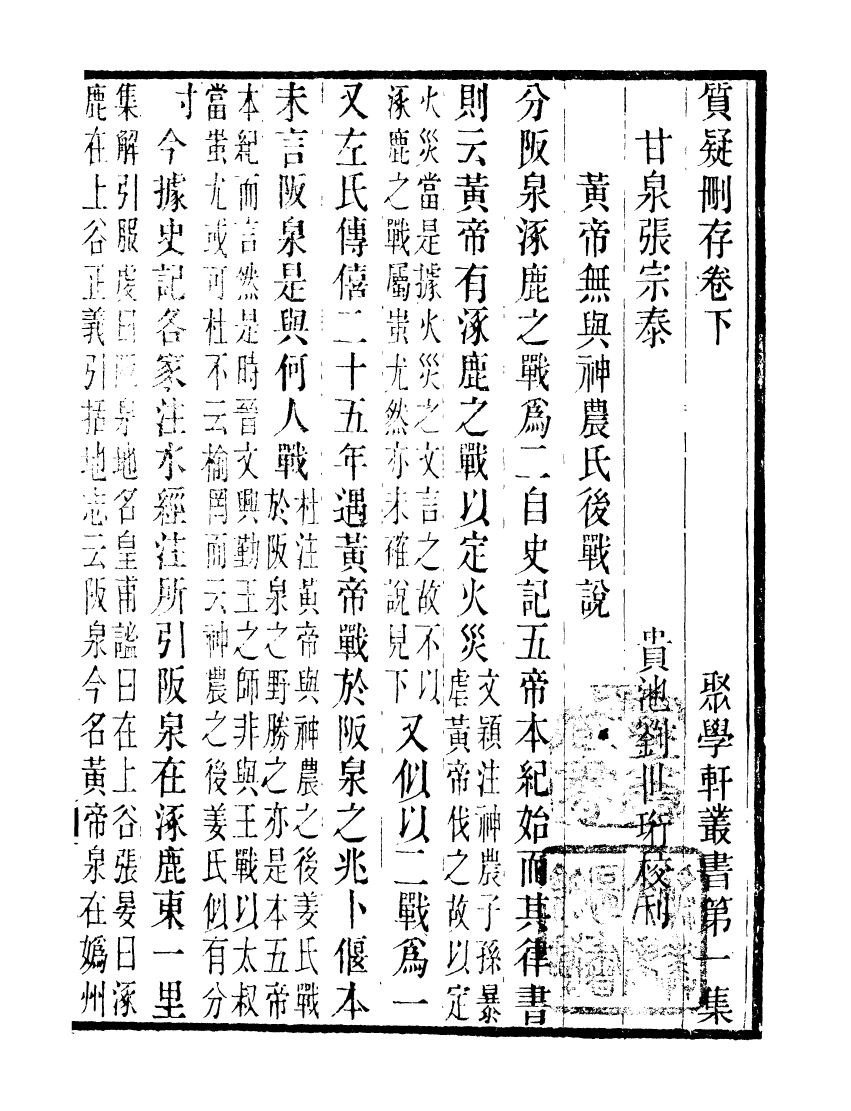 質疑刪存卷下　聚學軒叢書第一集
甘泉張宗泰　貴池劉世珩校刊
黃帝無與神農氏後戰說
分阪泉涿鹿之戰爲二自史記五帝本紀始而其律書
則云黃帝有涿鹿之戰以定火災文穎注神農子孫暴
虐黃帝伐之故以定
火災當是據火災之文言之故不以
涿鹿之戰屬蚩尤然亦未確說見下又似以二戰爲一
又左氏傳僖二十五年遇黃帝戰於阪泉之兆卜偃本
未言阪泉是與何人戰杜注黃帝與神農之後姜氏戰
於阪泉之野勝之亦是本五帝
本紀而言然是時晉文興勤王之師非與王戰以太叔
當蚩尤或可杜不云榆罔而云神農之後姜氏似有分
寸今據史記各家注水經注所引阪泉在涿鹿東一里
集解引服虔曰阪泉地名皇甫謐曰在上谷張晏曰涿
鹿在上谷正義引括地志云阪泉今名黃帝泉在嬀州